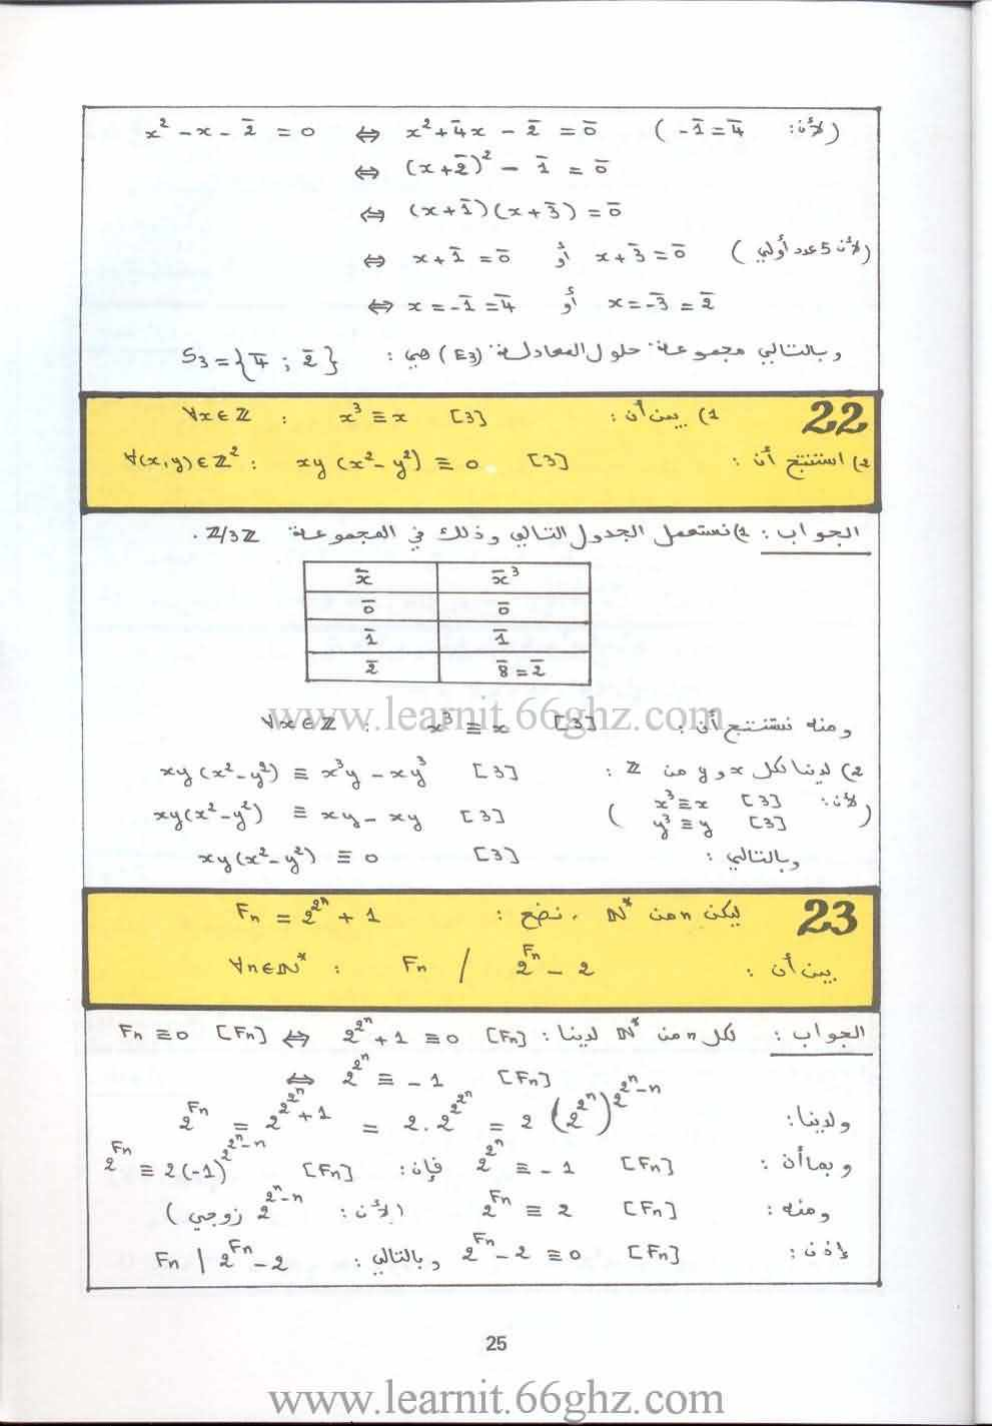 x² - x - 2̄ = 0 ⇔ x² + 4̄x - 2̄ = 0̄ (لأن: -1̄ = 4̄)
⇔ (x + 2̄)² - 1̄ = 0̄
⇔ (x + 1̄)(x + 3̄) = 0̄
⇔ x + 1̄ = 0̄ أو x + 3̄ = 0̄ (لأن 5 عدد أولي)
⇔ x = -1̄ = 4̄ أو x = -3̄ = 2̄
وبالتالي مجموعة حلول المعادلة (E3) هي: S3 = {4̄ ; 2̄}
22
1) بين أن: ∀x ∈ ℤ : x³ ≡ x [3]
2) استنتج أن: ∀(x,y) ∈ ℤ² : xy (x² - y²) ≡ 0 [3]
الجواب: 1) نستعمل الجدول التالي وذلك في المجموعة ℤ/3ℤ .
x̄ x̄³
0̄ 0̄
1̄ 1̄
2̄ 8̄ = 2̄
ومنه نستنتج أن: ∀x ∈ ℤ : x³ ≡ x [3]
www.learnit.66ghz.com
2) لدينا لكل x و y من ℤ : xy (x² - y²) ≡ x³y - xy³ [3]
xy(x² - y²) ≡ xy - xy [3] (لأن: x³ ≡ x [3]
y³ ≡ y [3])
وبالتالي: xy(x² - y²) ≡ 0 [3]
23
ليكن n من ℕ* ، نضع: Fn = 2^(2^n) + 1
بين أن: ∀n ∈ ℕ* : Fn / 2^(Fn) - 2
الجواب: لكل n من ℕ* لدينا: Fn ≡ 0 [Fn] ⇔ 2^(2^n) + 1 ≡ 0 [Fn]
⇔ 2^(2^n) ≡ -1 [Fn]
ولدينا: 2^(Fn) = 2^(2^(2^n) + 1) = 2 . 2^(2^(2^n)) = 2 (2^(2^n))^(2^(2^n - n))
وبما أن: 2^(2^n) ≡ -1 [Fn] فإن: 2^(Fn) ≡ 2(-1)^(2^(2^n - n)) [Fn]
ومنه: 2^(Fn) ≡ 2 [Fn] (لأن: 2^(2^n - n) زوجي)
إذن: 2^(Fn) - 2 ≡ 0 [Fn] وبالتالي: Fn | 2^(Fn) - 2
25
www.learnit.66ghz.com